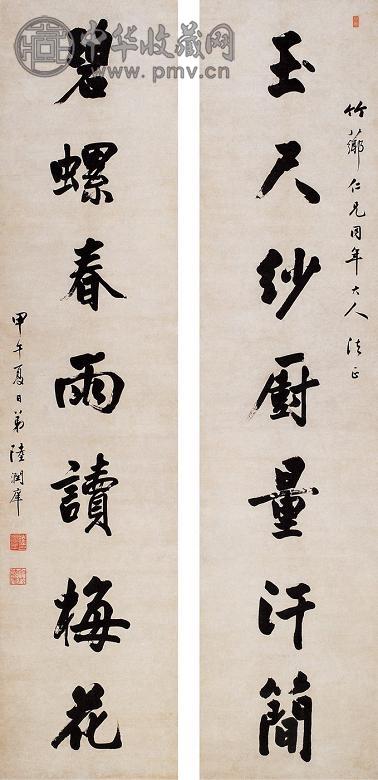 竹薌仁兄同年大人法正
玉尺紗厨量汗簡
碧螺春雨讀梅花
甲午夏日弟陸潤庠
中华收藏网
www.pmv.cn